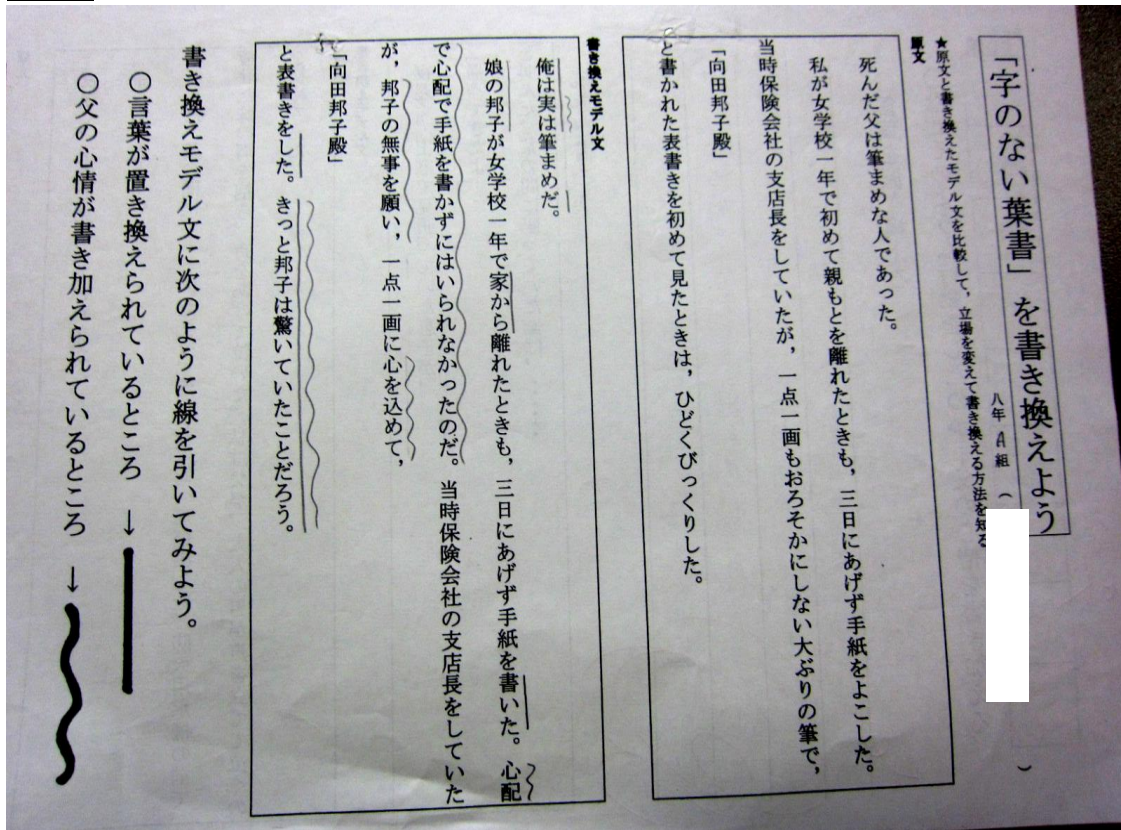 「字のない葉書」を書き換えよう
八年 A 組 （ ）
★原文と書き換えたモデル文を比較して，立場を変えて書き換える方法を知る
原文
死んだ父は筆まめな人であった。
私が女学校一年で初めて親もとを離れたときも，三日にあげず手紙をよこした。
当時保険会社の支店長をしていたが，一点一画もおろそかにしない大ぶりの筆で，
「向田邦子殿」
と書かれた表書きを初めて見たときは，ひどくびっくりした。
書き換えモデル文
俺は実は筆まめだ。
娘の邦子が女学校一年で家から離れたときも，三日にあげず手紙を書いた。心配
で心配で手紙を書かずにはいられなかったのだ。当時保険会社の支店長をしていた
が，邦子の無事を願い，一点一画に心を込めて，
「向田邦子殿」
と表書きをした。きっと邦子は驚いていたことだろう。
書き換えモデル文に次のように線を引いてみよう。
○言葉が置き換えられているところ →
○父の心情が書き加えられているところ →